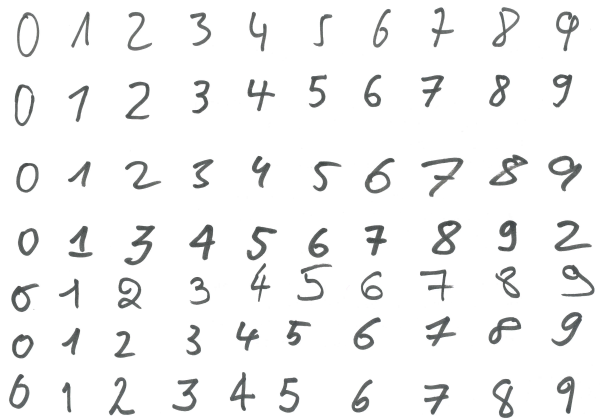 0 1 2 3 4 5 6 7 8 9
0 1 2 3 4 5 6 7 8 9
0 1 2 3 4 5 6 7 8 9
0 1 3 4 5 6 7 8 9 2
0 1 2 3 4 5 6 7 8 9
0 1 2 3 4 5 6 7 8 9
0 1 2 3 4 5 6 7 8 9